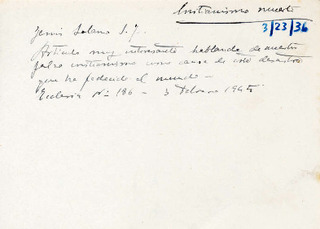 Cristianismo muerto
3/23/36
Jesús Solano S.J.
Artículo muy interesante hablando de nuestro
falso cristianismo como causa de este desastre
que ha padecido el mundo —
Ecclesia Nº 186 — 3 Febrero 1945